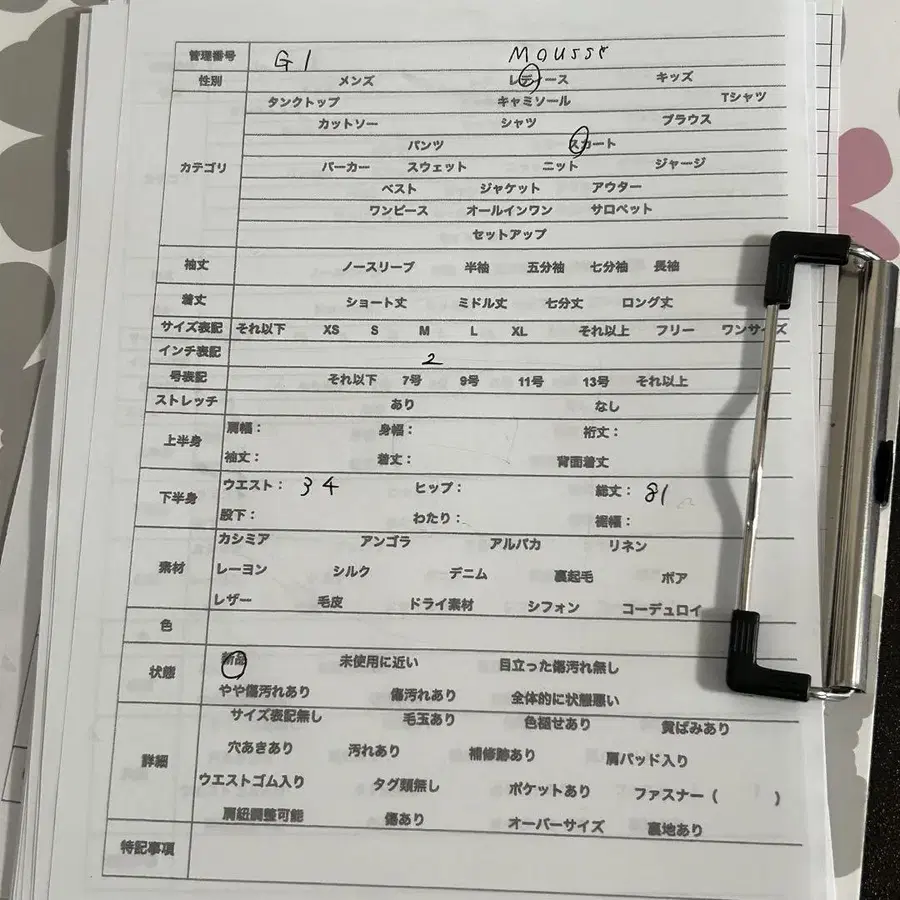 管理番号 G1 Mousse
性別 メンズ レディース キッズ
タンクトップ キャミソール Tシャツ
カットソー シャツ ブラウス
パンツ スカート
カテゴリ パーカー スウェット ニット ジャージ
ベスト ジャケット アウター
ワンピース オールインワン サロペット
セットアップ
袖丈 ノースリーブ 半袖 五分袖 七分袖 長袖
着丈 ショート丈 ミドル丈 七分丈 ロング丈
サイズ表記 それ以下 XS S M L XL それ以上 フリー ワンサイズ
インチ表記 2
号表記 それ以下 7号 9号 11号 13号 それ以上
ストレッチ あり なし
上半身 肩幅： 身幅： 裄丈：
袖丈： 着丈： 背面着丈
下半身 ウエスト： 34 ヒップ： 総丈： 81
股下： わたり： 裾幅：
カシミア アンゴラ アルパカ リネン
素材 レーヨン シルク デニム 裏起毛 ボア
レザー 毛皮 ドライ素材 シフォン コーデュロイ
色
状態 新品 未使用に近い 目立った傷汚れ無し
やや傷汚れあり 傷汚れあり 全体的に状態悪い
サイズ表記無し 毛玉あり 色褪せあり 黄ばみあり
詳細 穴あきあり 汚れあり 補修跡あり 肩パッド入り
ウエストゴム入り タグ類無し ポケットあり ファスナー（ ）
肩紐調整可能 傷あり オーバーサイズ 裏地あり
特記事項